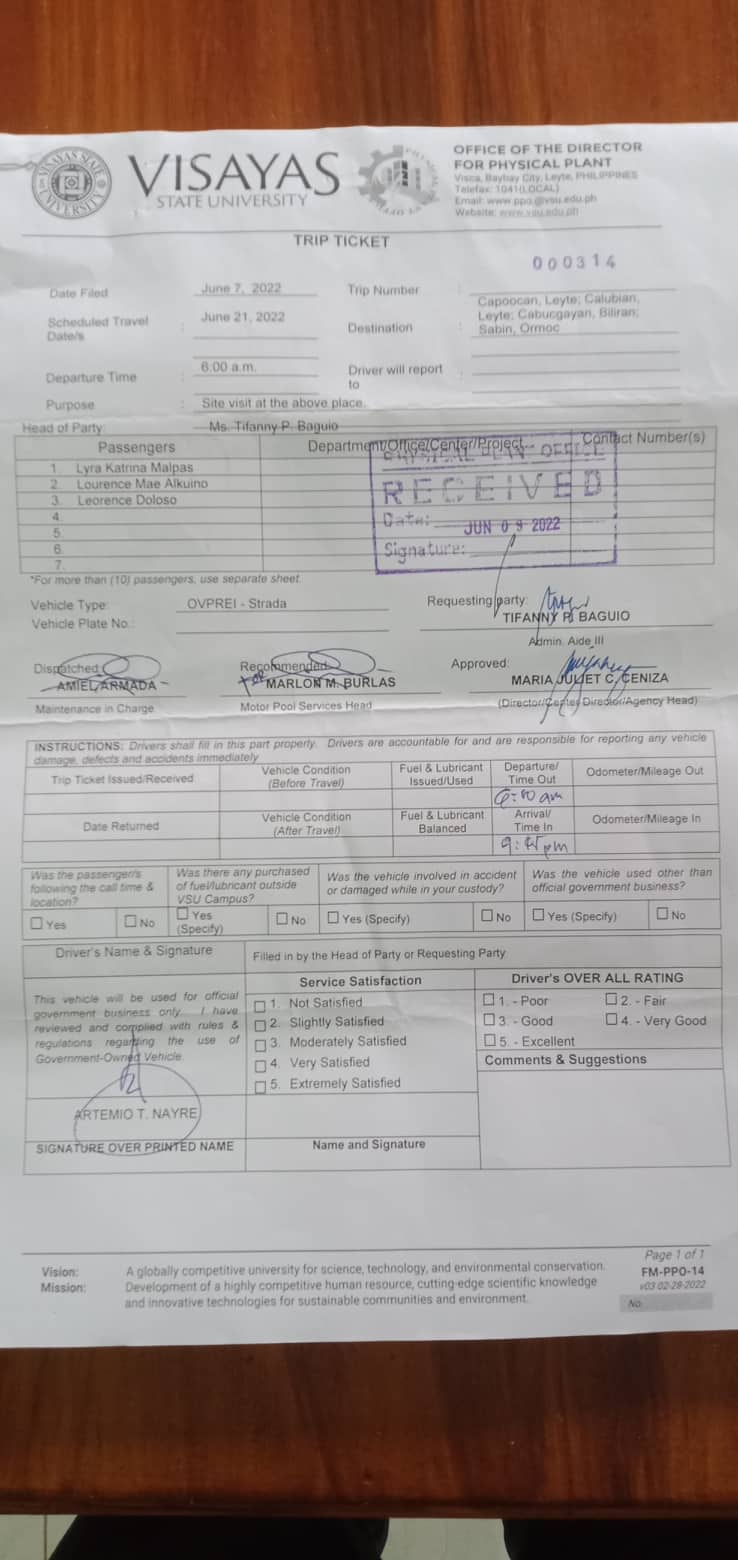 VISAYAS STATE UNIVERSITY
VISAYAS
STATE UNIVERSITY
OFFICE OF THE DIRECTOR
FOR PHYSICAL PLANT
Visca, Baybay City, Leyte, PHILIPPINES
Telefax: 1041(LOCAL)
Email: www.ppo.@vsu.edu.ph
Website: www.vsu.edu.ph
TRIP TICKET
000314
Date Filed : June 7, 2022 Trip Number :
Scheduled Travel Date/s : June 21, 2022 Destination : Capoocan, Leyte; Calubian,
Leyte; Cabucgayan, Biliran;
Sabin, Ormoc
Departure Time : 6:00 a.m. Driver will report to :
Purpose : Site visit at the above place.
Head of Party: Ms. Tifanny P. Baguio
Passengers Department/Office/Center/Project Contact Number(s)
1. Lyra Katrina Malpas
2. Lourence Mae Alkuino
3. Leorence Doloso
4.
5.
6.
7.
RECEIVED
Date: JUN 09 2022
Signature:
*For more than (10) passengers, use separate sheet.
Vehicle Type: OVPREI - Strada Requesting party:
Vehicle Plate No.: TIFANNY P. BAGUIO
Admin. Aide III
Dispatched: Recommended: Approved:
AMIEL ARMADA MARLON M. BURLAS MARIA JULIET C. CENIZA
Maintenance in Charge Motor Pool Services Head (Director/Center Director/Agency Head)
INSTRUCTIONS: Drivers shall fill in this part properly. Drivers are accountable for and are responsible for reporting any vehicle
damage, defects and accidents immediately
Trip Ticket Issued/Received Vehicle Condition (Before Travel) Fuel & Lubricant Issued/Used Departure/ Time Out Odometer/Mileage Out
6:00 am
Date Returned Vehicle Condition (After Travel) Fuel & Lubricant Balanced Arrival/ Time In Odometer/Mileage In
9:45 pm
Was the passenger/s following the call time & location? Was there any purchased of fuel/lubricant outside VSU Campus? Was the vehicle involved in accident or damaged while in your custody? Was the vehicle used other than official government business?
Yes No Yes (Specify) No Yes (Specify) No Yes (Specify) No
Driver's Name & Signature Filled in by the Head of Party or Requesting Party
Service Satisfaction Driver's OVER ALL RATING
This vehicle will be used for official
government business only. I have
reviewed and complied with rules &
regulations regarding the use of
Government-Owned Vehicle.
1. Not Satisfied
2. Slightly Satisfied
3. Moderately Satisfied
4. Very Satisfied
5. Extremely Satisfied
1. - Poor 2. - Fair
3. - Good 4. - Very Good
5. - Excellent
Comments & Suggestions
ARTEMIO T. NAYRE
SIGNATURE OVER PRINTED NAME Name and Signature
Page 1 of 1
FM-PPO-14
v03 02-28-2022
No.
Vision: A globally competitive university for science, technology, and environmental conservation.
Mission: Development of a highly competitive human resource, cutting-edge scientific knowledge
and innovative technologies for sustainable communities and environment.